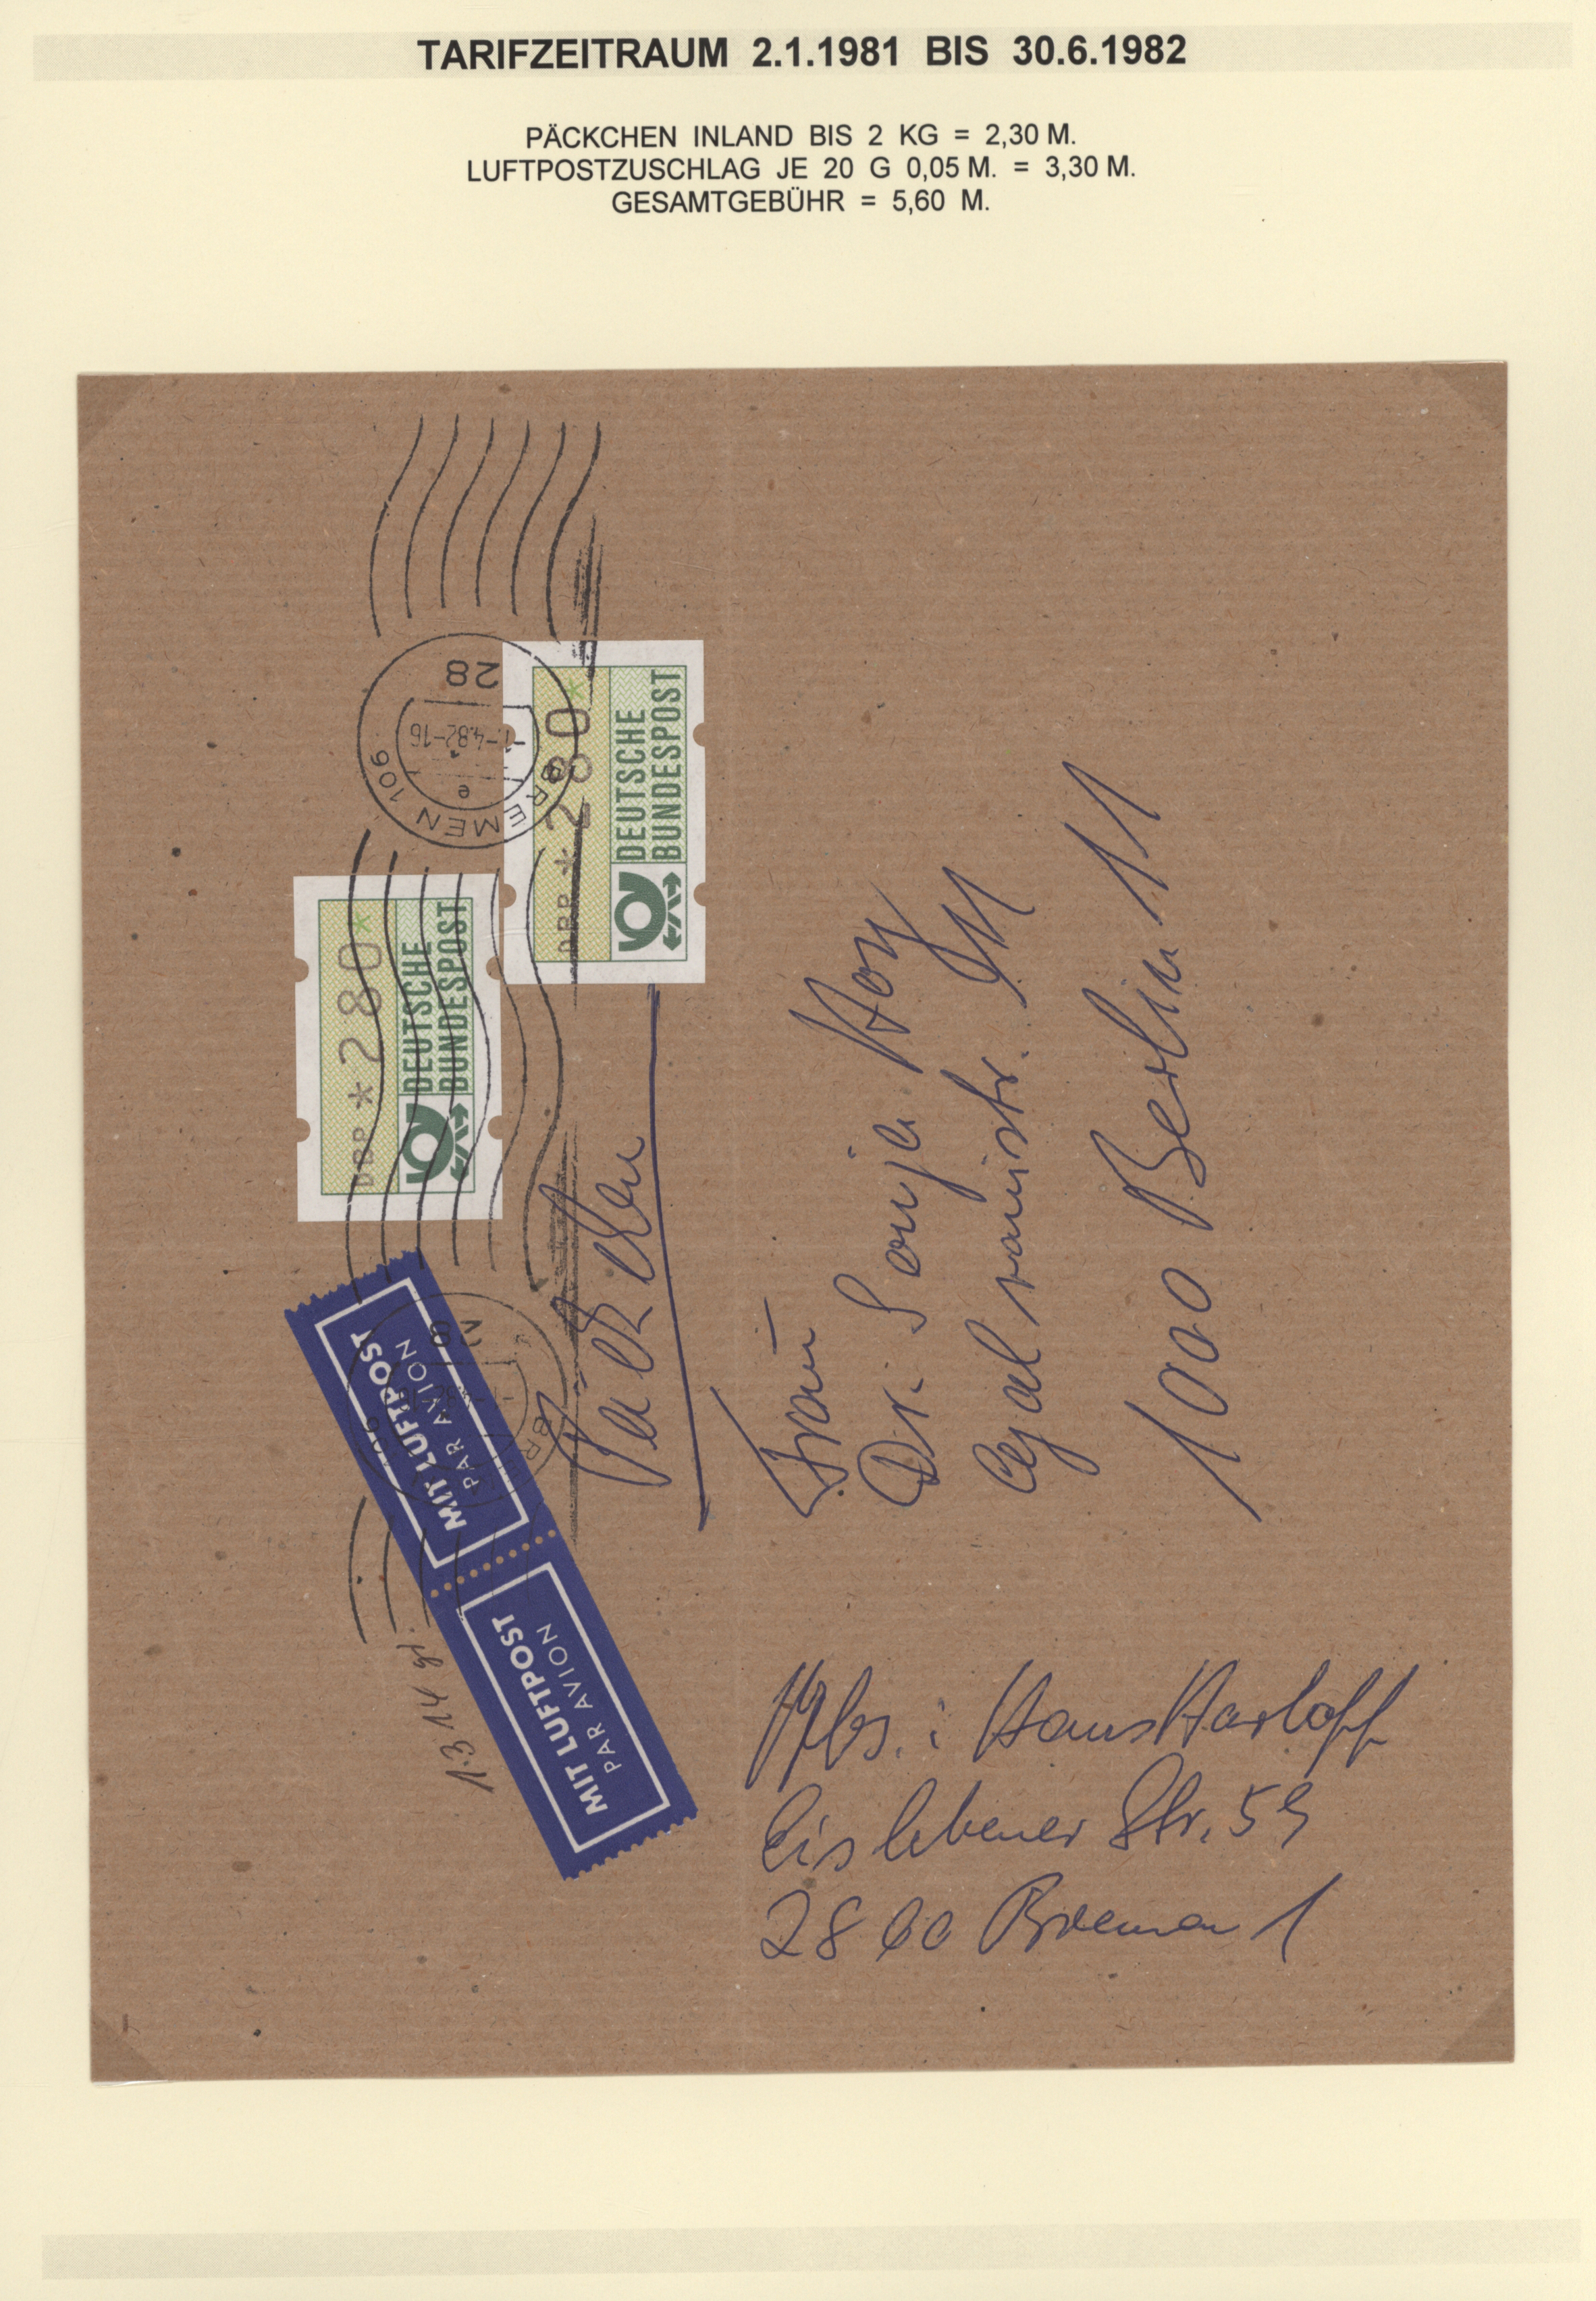 TARIFZEITRAUM 2.1.1981 BIS 30.6.1982
PÄCKCHEN INLAND BIS 2 KG = 2,30 M.
LUFTPOSTZUSCHLAG JE 20 G 0,05 M. = 3,30 M.
GESAMTGEBÜHR = 5,60 M.
28
-1.-4.82-16
e
BREMEN 106
DBP *280*
DEUTSCHE
BUNDESPOST
DBP *280*
DEUTSCHE
BUNDESPOST
MIT LUFTPOST
PAR AVION
MIT LUFTPOST
PAR AVION
1.314 gr.
Päckchen
Frau
Dr. Sonja Hoy
1000 Berlin 11
Abs.: Hans Harloff
Eislebener Str. 59
2800 Bremen 1